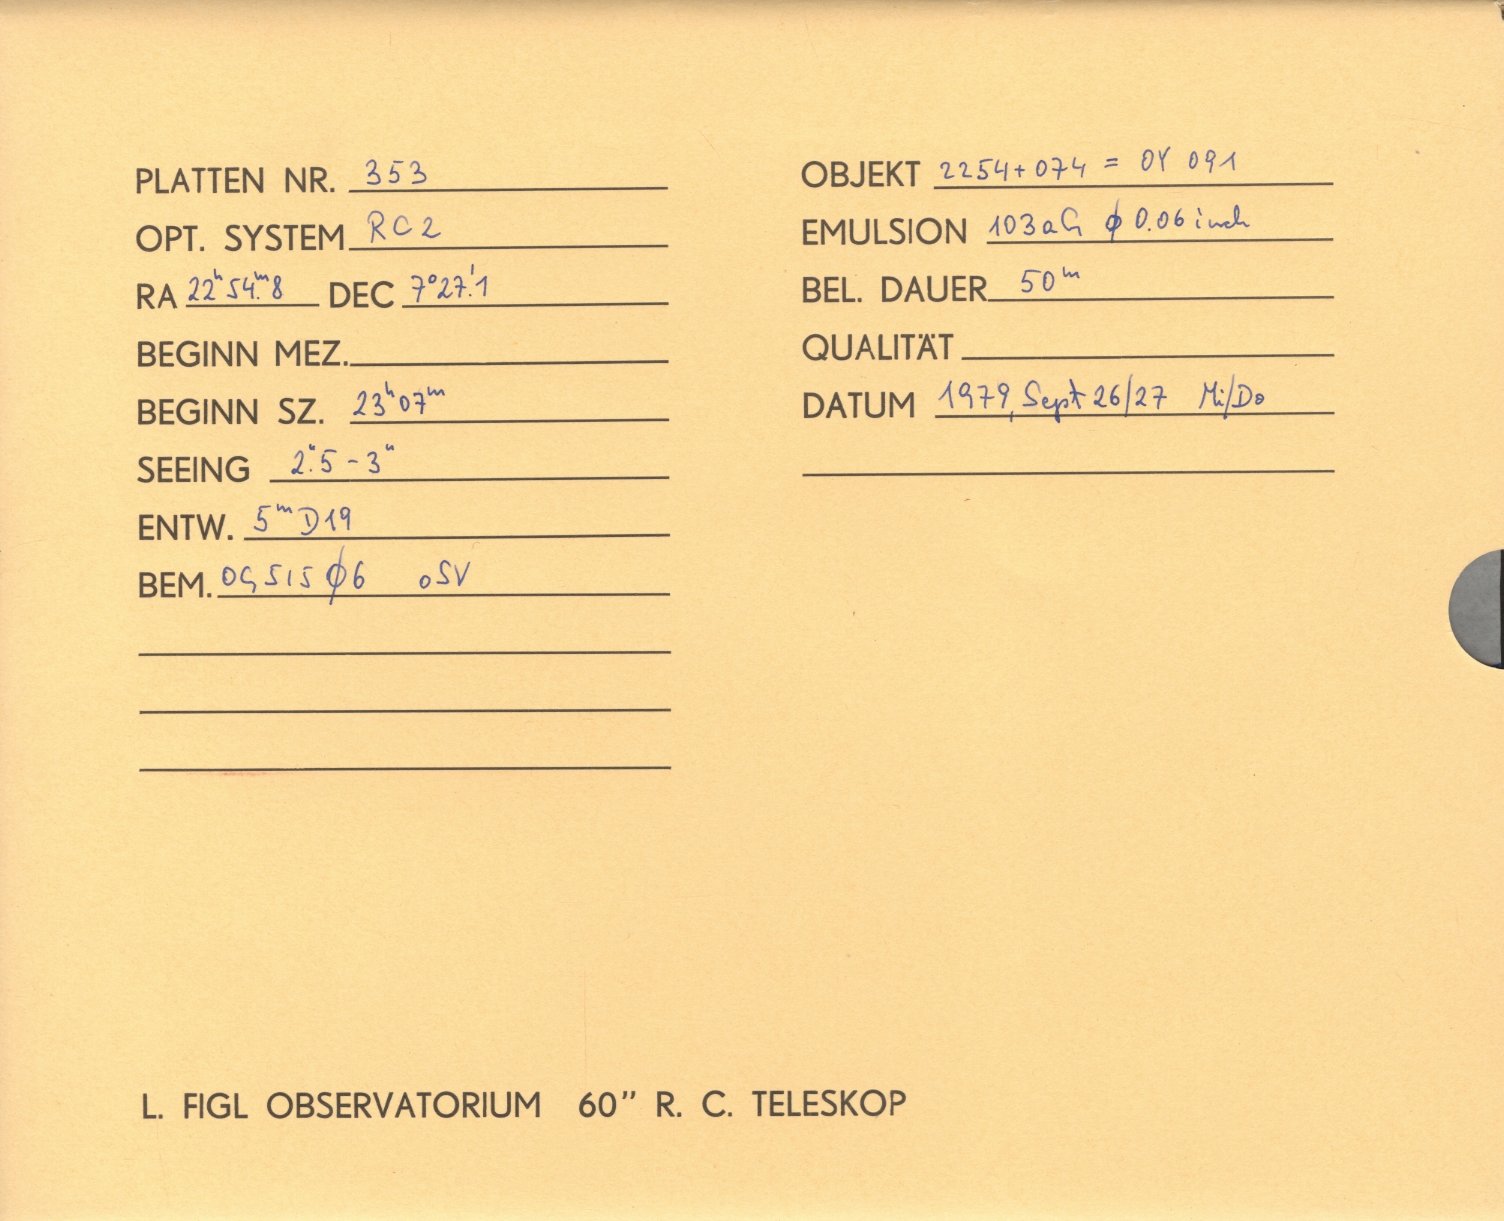 PLATTEN NR. 353
OPT. SYSTEM RC2
RA 22ʰ54ᵐ.8 DEC 7°27'.1
BEGINN MEZ.
BEGINN SZ. 23ʰ07ᵐ
SEEING 2".5 - 3"
ENTW. 5ᵐ D19
BEM. OG515 ϕ6 oSV
OBJEKT 2254+074 = OY 091
EMULSION 103aG ϕ 0.06 inch
BEL. DAUER 50ᵐ
QUALITÄT
DATUM 1979, Sept 26/27 Mi/Do
L. FIGL OBSERVATORIUM 60" R. C. TELESKOP